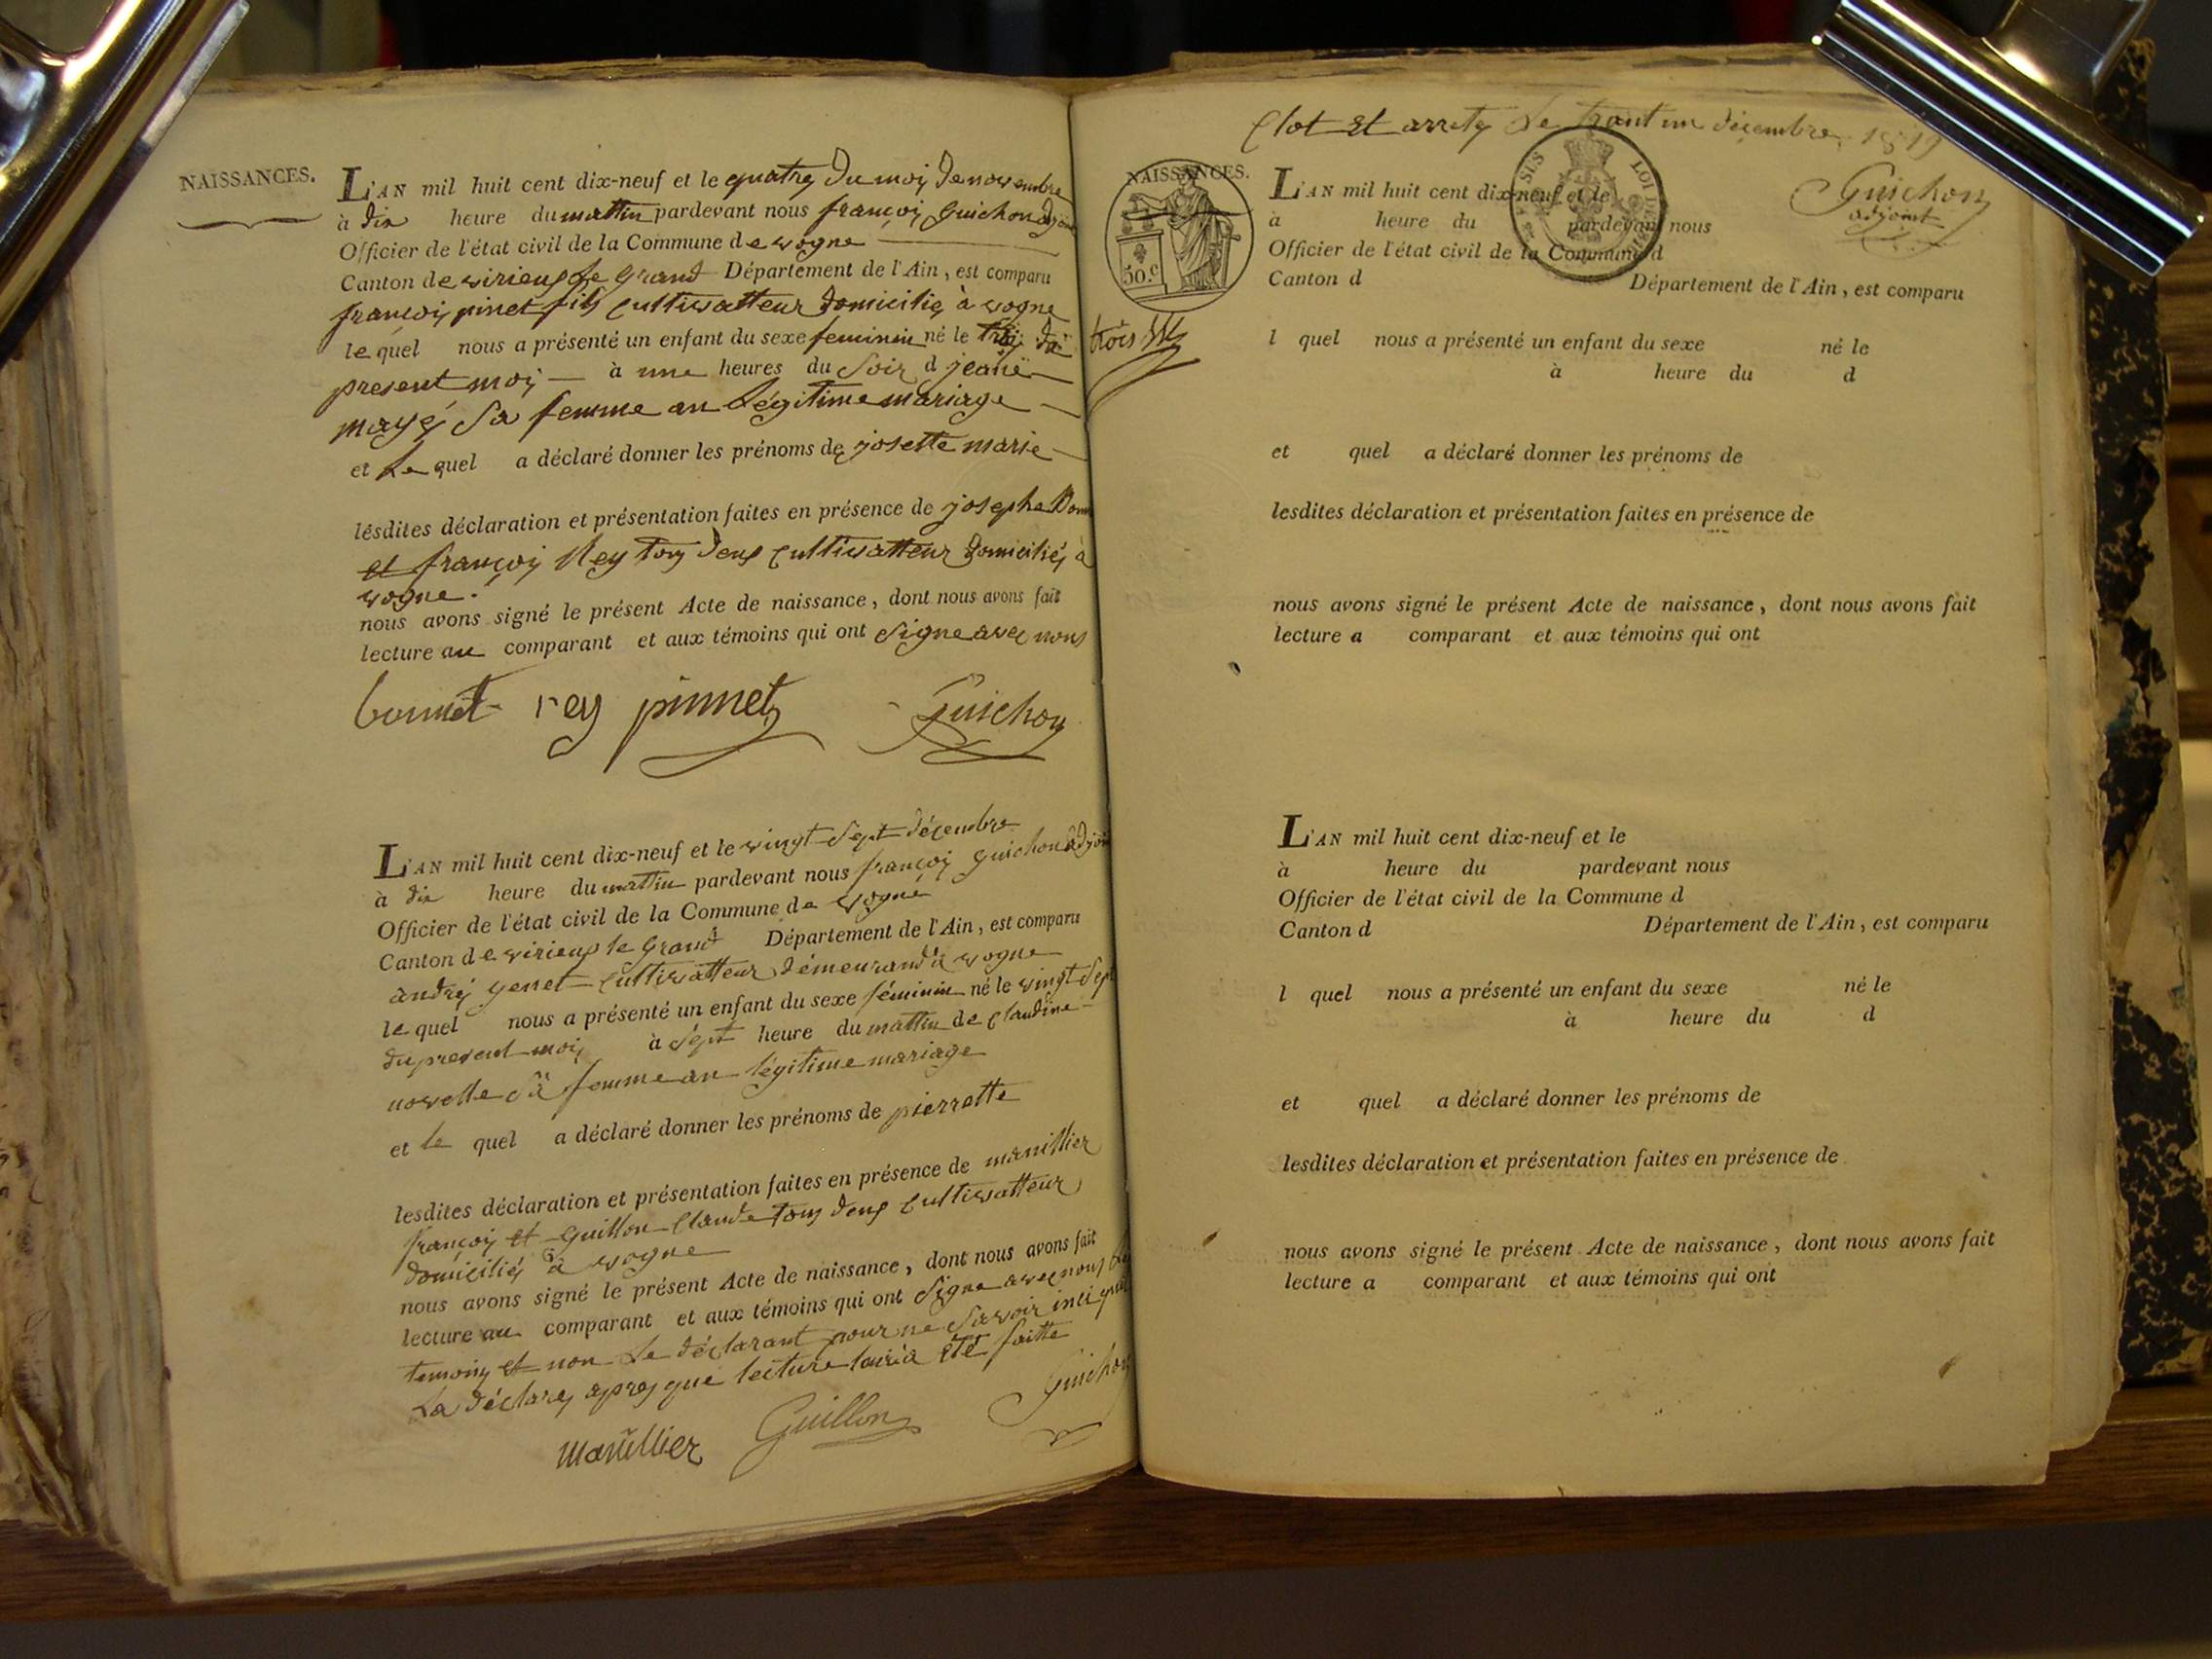 NAISSANCES.
L'AN mil huit cent dix-neuf et le quatre du moy de novembre
à dix heure du mattin pardevant nous françoy guichon adjoi
Officier de l'état civil de la Commune de vogne
Canton de virieux le grand Département de l'Ain, est comparu
françoy pinet fils cultivatteur domicilie à vogne
le quel nous a présenté un enfant du sexe feminin né le du
present moy à une heures du soir d jeane
maye sa femme an légitime mariage
et le quel a déclaré donner les prénoms de josette marie
lesdites déclaration et présentation faites en présence de josephe Bonn
et françoy Rey tous deux cultivatteur domiciliés à
vogne.
nous avons signé le présent Acte de naissance, dont nous avons fait
lecture au comparant et aux témoins qui ont signe avec nous
bonnet rey pinnet Guichon
L'AN mil huit cent dix-neuf et le vingt sept décembre
à dix heure du mattin pardevant nous françoy guichon adjoi
Officier de l'état civil de la Commune de vogne
Canton de virieux le grand Département de l'Ain, est comparu
andré genet cultivatteur démeurand à vogne
le quel nous a présenté un enfant du sexe féminin né le vingt sept
du present moy à sept heure du mattin de claudine
novelle sa femme an légitime mariage
et le quel a déclaré donner les prénoms de pierrette
lesdites déclaration et présentation faites en présence de manillier
françoy et guillon claude tous deux cultivatteur
domiciliés à vogne
nous avons signé le présent Acte de naissance, dont nous avons fait
lecture au comparant et aux témoins qui ont signe avec nous
temoins et non le déclarant pour ne savoir
la déclare apres que lecture a été faitte
Manillier Guillon Guichon
Clot et arrete le trant un décembre 1819
Guichon
adjoint
NAISSANCES.
50.c
L'AN mil huit cent dix-neuf et le
à heure du pardevant nous
Officier de l'état civil de la Commune d
Canton d Département de l'Ain, est comparu
trois
l quel nous a présenté un enfant du sexe né le
à heure du d
et quel a déclaré donner les prénoms de
lesdites déclaration et présentation faites en présence de
nous avons signé le présent Acte de naissance, dont nous avons fait
lecture a comparant et aux témoins qui ont
L'AN mil huit cent dix-neuf et le
à heure du pardevant nous
Officier de l'état civil de la Commune d
Canton d Département de l'Ain, est comparu
l quel nous a présenté un enfant du sexe né le
à heure du d
et quel a déclaré donner les prénoms de
lesdites déclaration et présentation faites en présence de
nous avons signé le présent Acte de naissance, dont nous avons fait
lecture a comparant et aux témoins qui ont